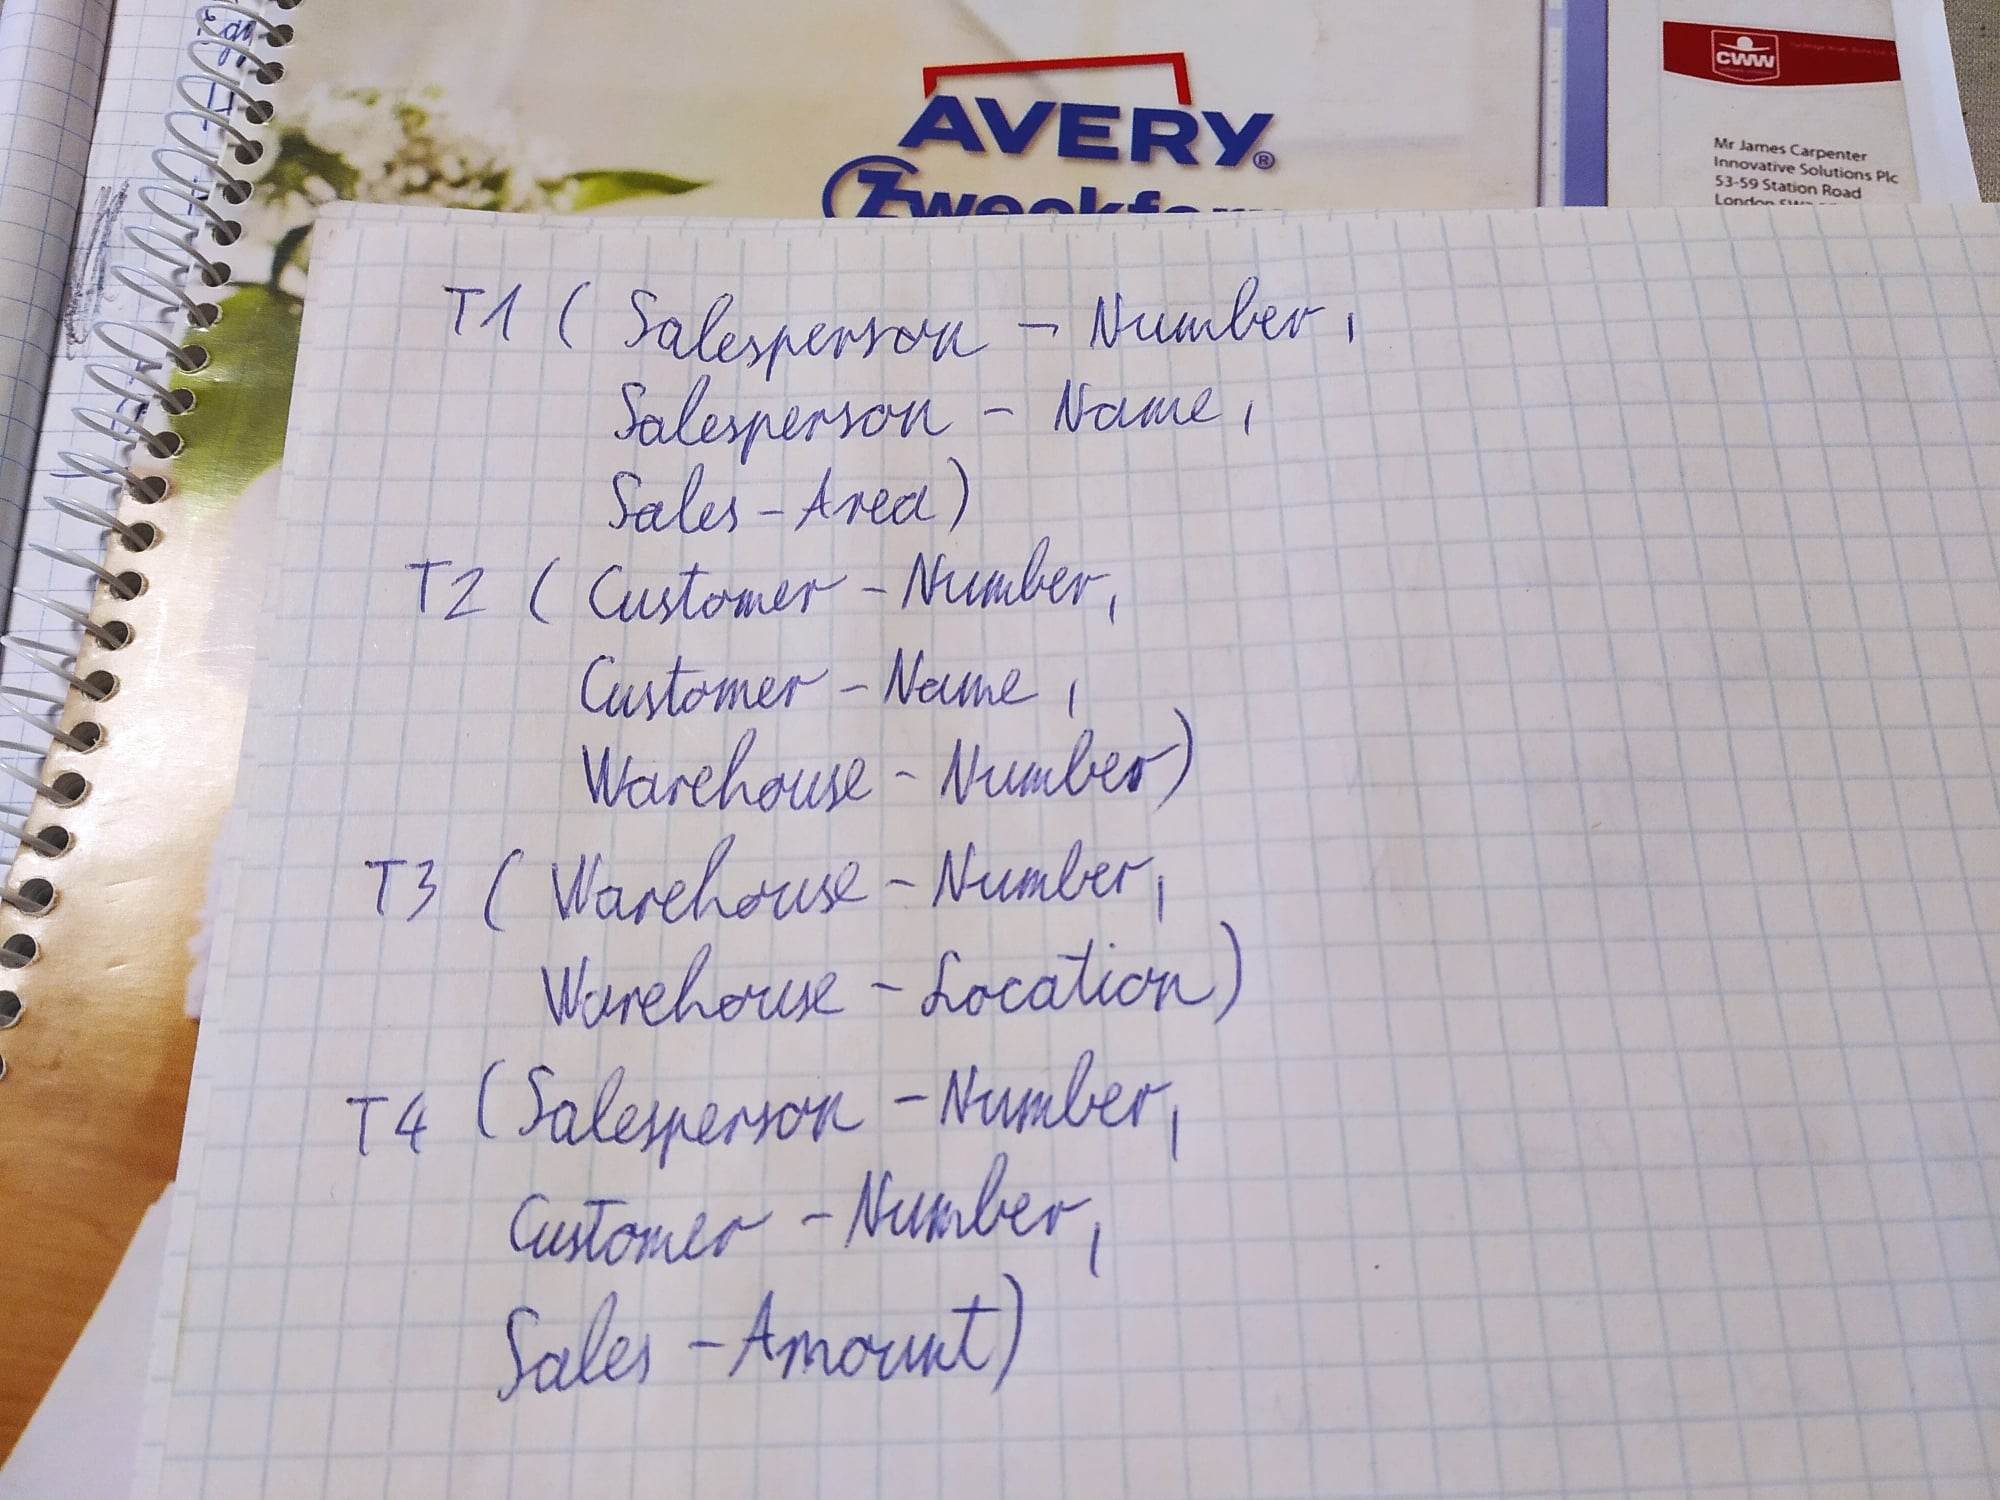 AVERY®
Zweckform
CWW
Mr James Carpenter
Innovative Solutions Plc
53-59 Station Road
London
T1 ( Salesperson - Number,
Salesperson - Name,
Sales - Area)
T2 ( Customer - Number,
Customer - Name,
Warehouse - Number)
T3 ( Warehouse - Number,
Warehouse - Location)
T4 ( Salesperson - Number,
Customer - Number,
Sales - Amount)